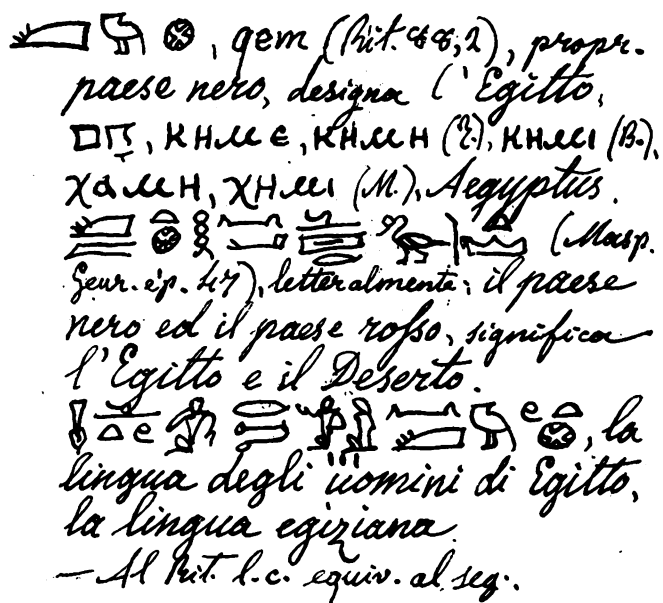 𓆎𓅓𓊖, qem (Rit. 88,2), propr.
paese nero, designa l'Egitto,
חָם, ⲕⲏⲙⲉ, ⲕⲏⲙⲏ (T.), ⲕⲏⲙⲓ (B.),
ⲭⲁⲙⲏ, ⲭⲏⲙⲓ (M.), Aegyptus.
(Masp.
Genr. ép. 47), letteralmente: il paese
nero ed il paese rosso, significa
l'Egitto e il Deserto.
, la
lingua degli uomini di Egitto,
la lingua egiziana.
— Al Rit. l.c. equiv. al seg.